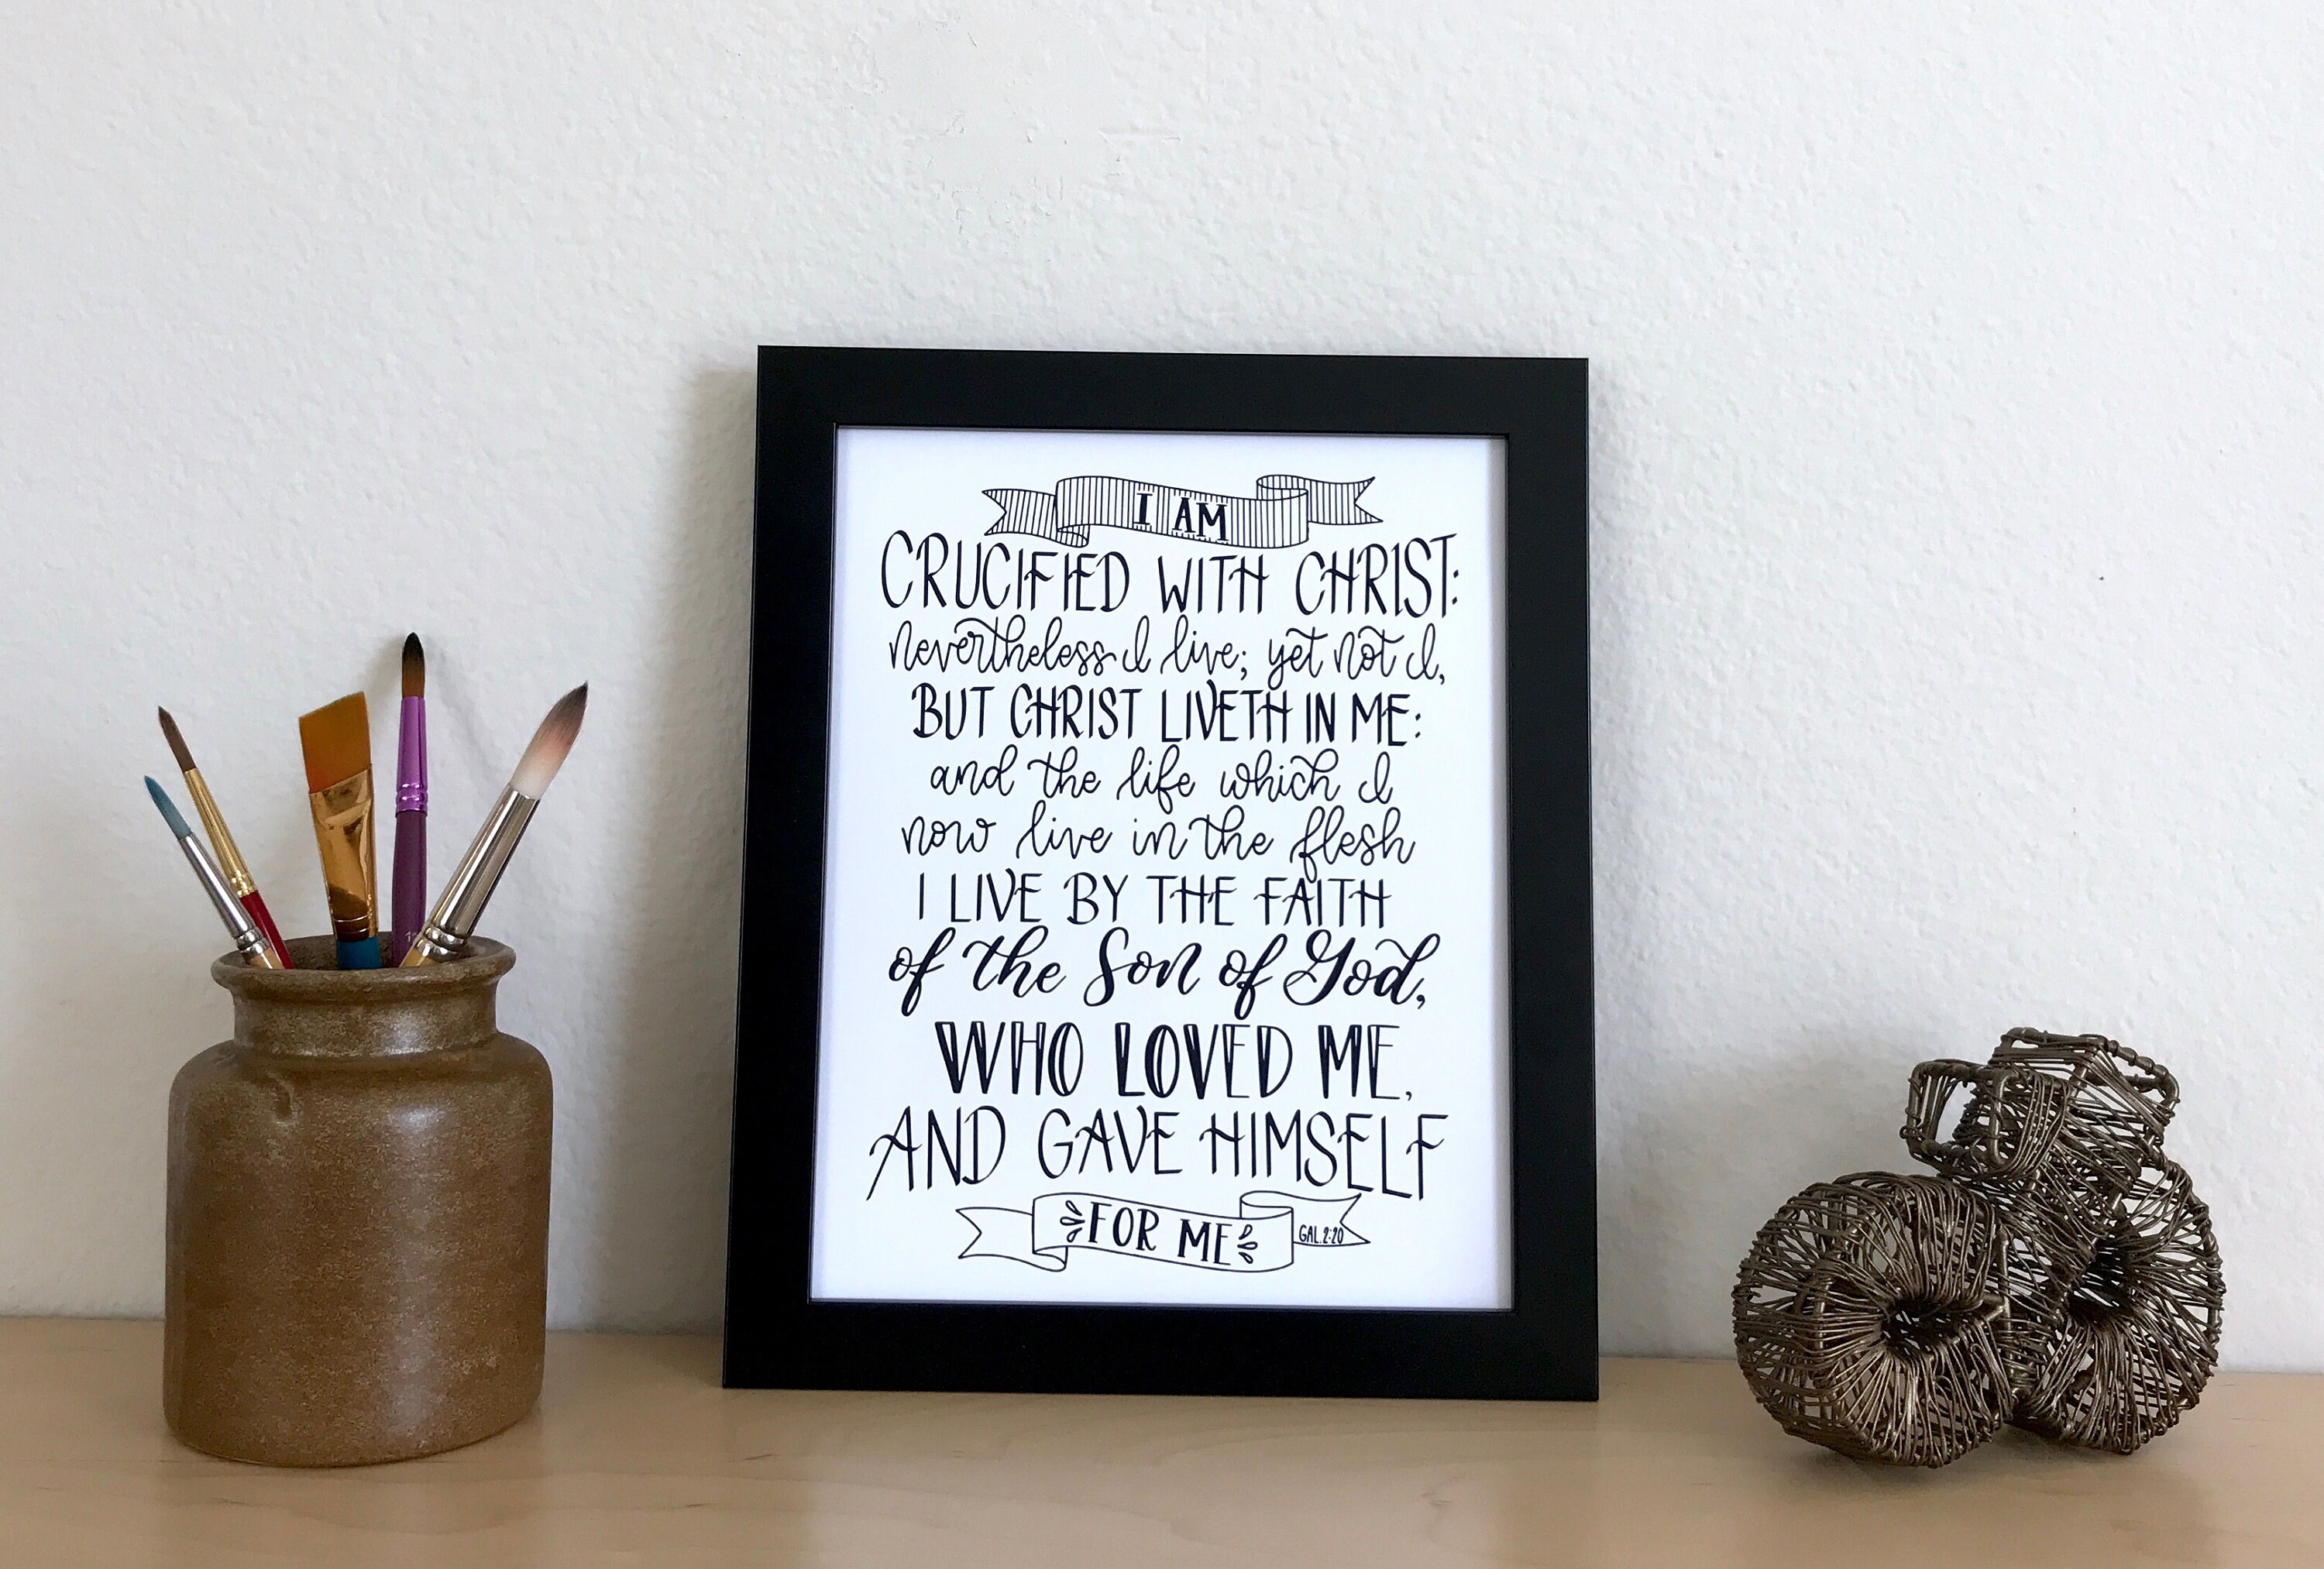 I AM
CRUCIFIED WITH CHRIST:
nevertheless I live; yet not I,
BUT CHRIST LIVETH IN ME:
and the life which I
now live in the flesh
I LIVE BY THE FAITH
of the Son of God,
WHO LOVED ME,
AND GAVE HIMSELF
FOR ME
GAL. 2:20